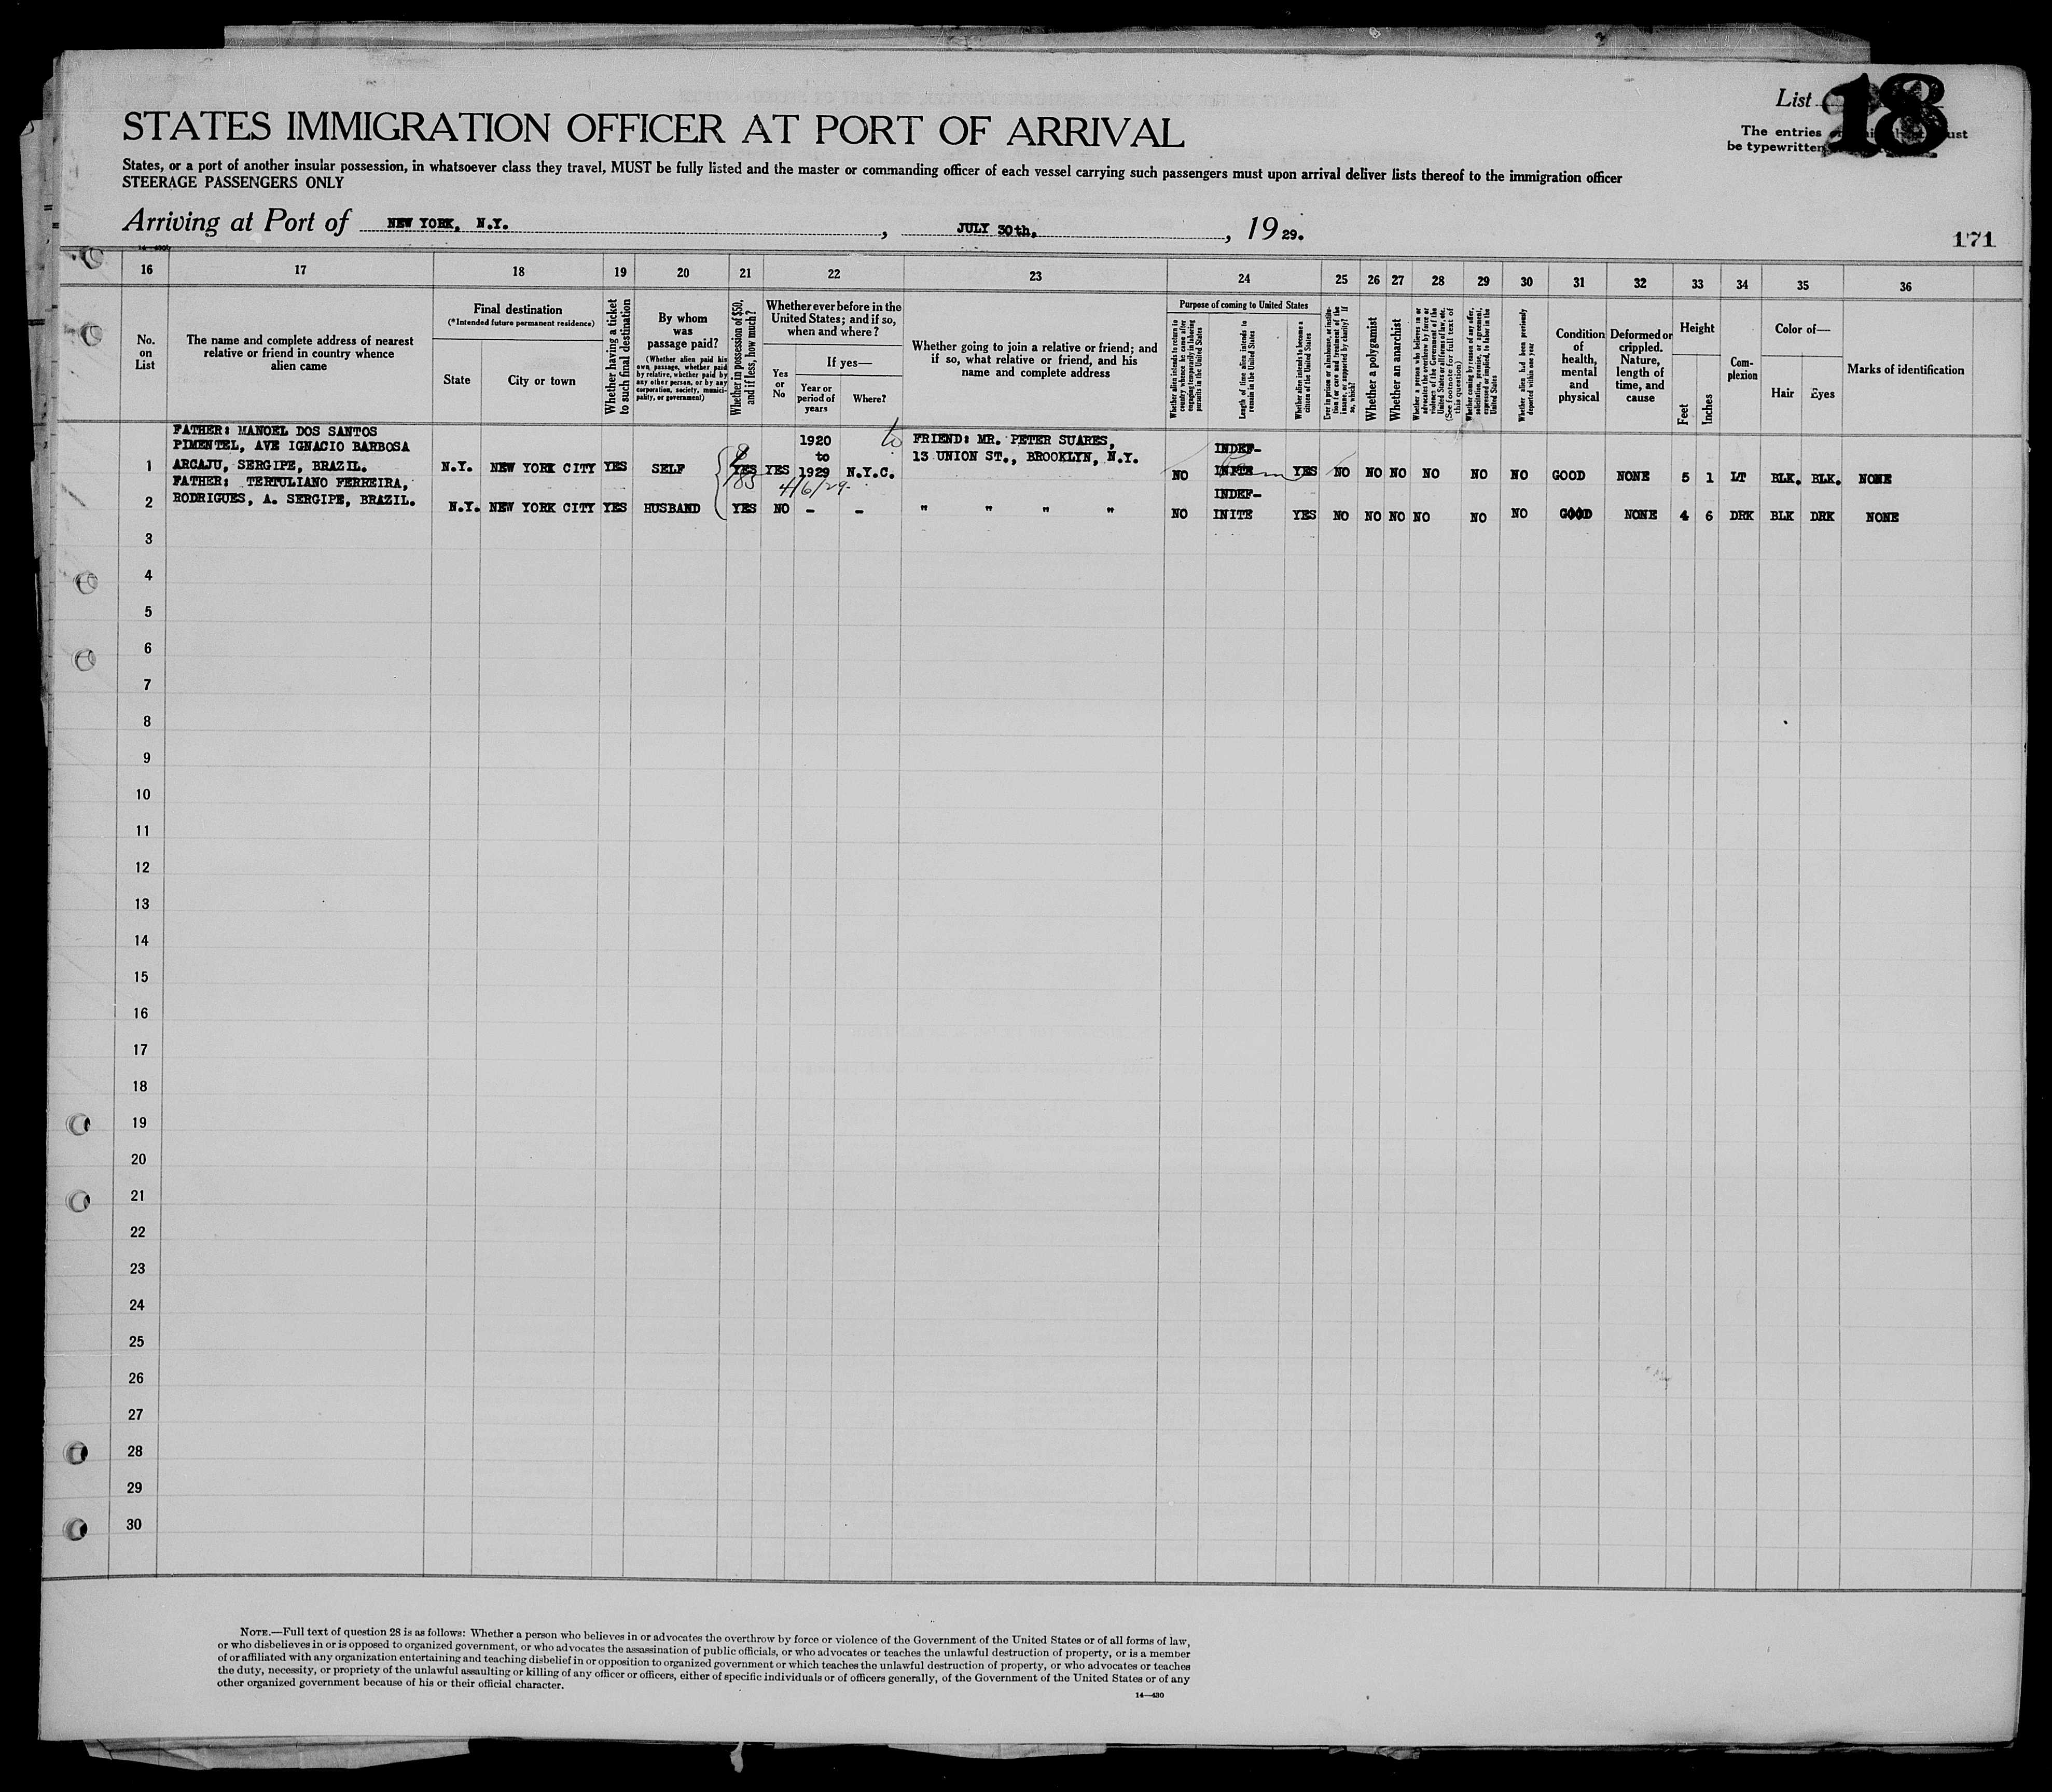 List 18
STATES IMMIGRATION OFFICER AT PORT OF ARRIVAL
The entries ust
be typewritten
States, or a port of another insular possession, in whatsoever class they travel, MUST be fully listed and the master or commanding officer of each vessel carrying such passengers must upon arrival deliver lists thereof to the immigration officer
STEERAGE PASSENGERS ONLY
Arriving at Port of NEW YORK, N.Y. , JULY 30th, , 1929.
171
16 17 18 19 20 21 22 23 24 25 26 27 28 29 30 31 32 33 34 35 36
No.
on
List
The name and complete address of nearest
relative or friend in country whence
alien came
Final destination
(*Intended future permanent residence)
State
City or town
Whether having a ticket
to such final destination
By whom
was
passage paid?
(Whether alien paid his
own passage, whether paid
by relative, whether paid by
any other person, or by any
corporation, society, munici-
pality, or government)
Whether in possession of $50,
and if less, how much?
Whether ever before in the
United States; and if so,
when and where?
Yes
or
No
If yes—
Year or
period of
years
Where?
Whether going to join a relative or friend; and
if so, what relative or friend, and his
name and complete address
Purpose of coming to United States
Whether alien intends to return to
country whence he came after
engaging temporarily in laboring
pursuits in the United States
Length of time alien intends to
remain in the United States
Whether alien intends to become a
citizen of the United States
Ever in prison or almshouse, or institu-
tion for care and treatment of the
insane, or supported by charity? If
so, which?
Whether a polygamist
Whether an anarchist
Whether a person who believes in or
advocates the overthrow by force or
violence of the Government of the
United States or all forms of law, etc.
(See footnote for full text of
this question)
Whether coming by reason of any offer,
solicitation, promise, or agreement,
expressed or implied, to labor in the
United States
Whether alien had been previously
deported within one year
Condition
of
health,
mental
and
physical
Deformed or
crippled.
Nature,
length of
time, and
cause
Height
Feet
Inches
Com-
plexion
Color of—
Hair
Eyes
Marks of identification
FATHER: MANOEL DOS SANTOS
PIMENTEL, AVE IGNACIO BARBOSA
1 ARCAJU, SERGIPE, BRAZIL. N.Y. NEW YORK CITY YES SELF YES YES 1920
to
1929 N.Y.C.
185
4/6/29
to
FRIEND: MR. PETER SUARES,
13 UNION ST., BROOKLYN, N.Y.
NO INDEF-
INITE YES NO NO NO NO NO NO GOOD NONE 5 1 LT BLK. BLK. NONE
FATHER: TERTULIANO FERREIRA,
2 RODRIGUES, A. SERGIPE, BRAZIL. N.Y. NEW YORK CITY YES HUSBAND YES NO - - " " " "
NO INDEF-
INITE YES NO NO NO NO NO NO GOOD NONE 4 6 DRK BLK DRK NONE
3
4
5
6
7
8
9
10
11
12
13
14
15
16
17
18
19
20
21
22
23
24
25
26
27
28
29
30
NOTE.—Full text of question 28 is as follows: Whether a person who believes in or advocates the overthrow by force or violence of the Government of the United States or of all forms of law,
or who disbelieves in or is opposed to organized government, or who advocates the assassination of public officials, or who advocates or teaches the unlawful destruction of property, or is a member
of or affiliated with any organization entertaining and teaching disbelief in or opposition to organized government or which teaches the unlawful destruction of property, or who advocates or teaches
the duty, necessity, or propriety of the unlawful assaulting or killing of any officer or officers, either of specific individuals or of officers generally, of the Government of the United States or of any
other organized government because of his or their official character.
14—430